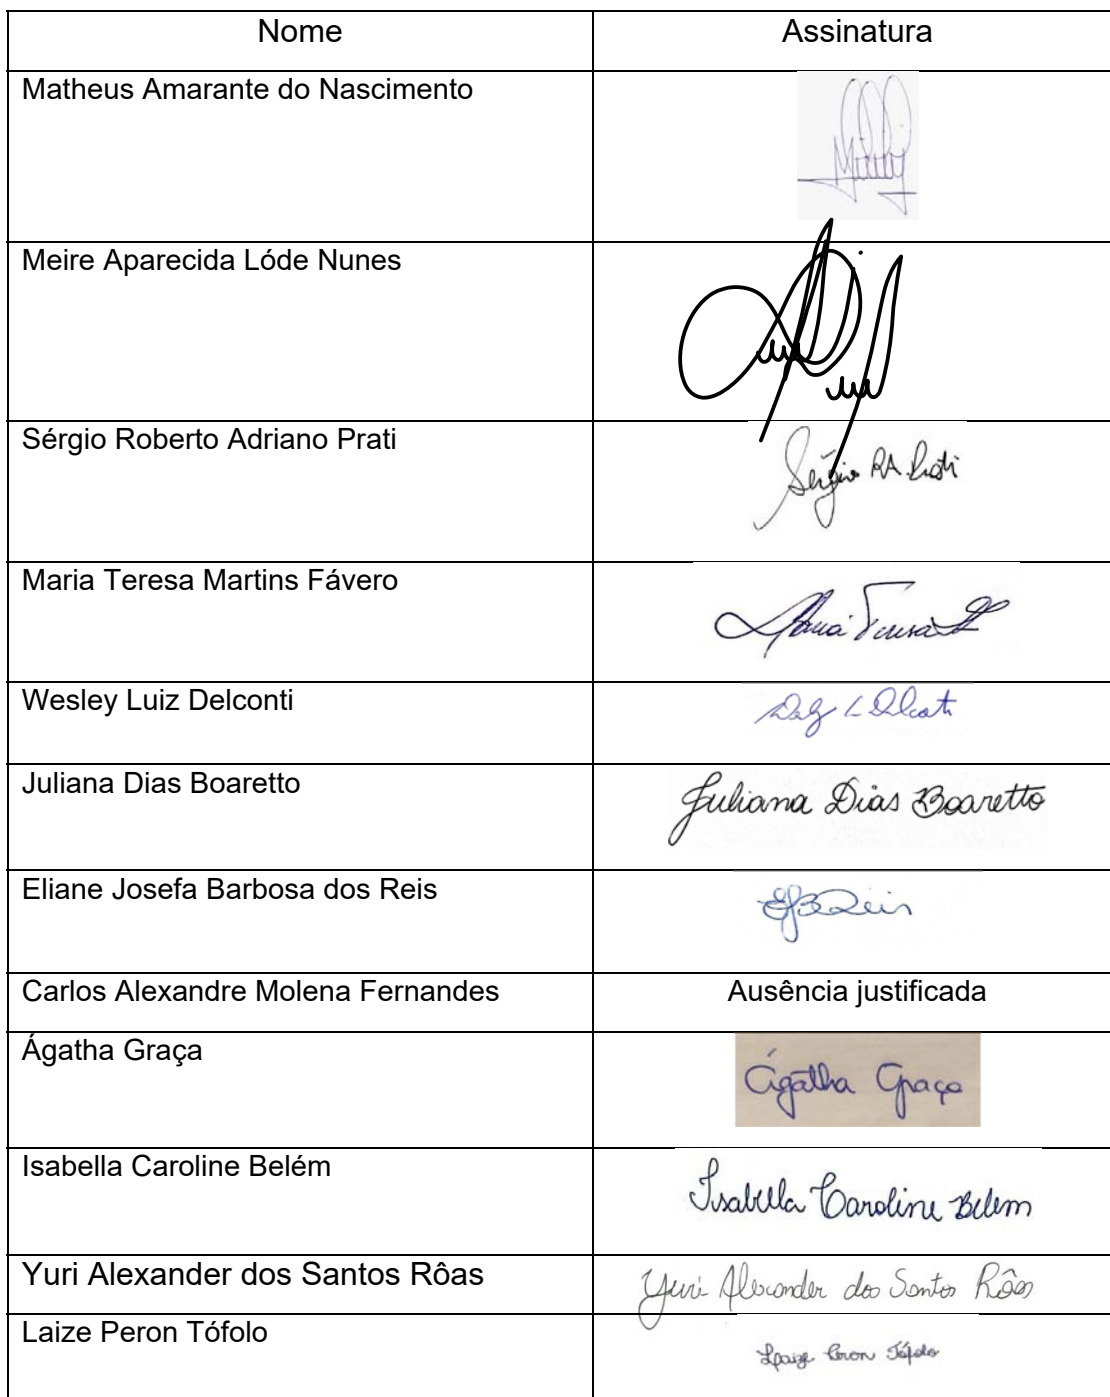 Nome Assinatura
Matheus Amarante do Nascimento
Meire Aparecida Lóde Nunes
Sérgio Roberto Adriano Prati Sérgio RA Prati
Maria Teresa Martins Fávero Maria Teresa
Wesley Luiz Delconti
Juliana Dias Boaretto Juliana Dias Boaretto
Eliane Josefa Barbosa dos Reis EJBReis
Carlos Alexandre Molena Fernandes Ausência justificada
Ágatha Graça Ágatha Graça
Isabella Caroline Belém Isabella Caroline Belem
Yuri Alexander dos Santos Rôas Yuri Alexander dos Santos Rôas
Laize Peron Tófolo Laize Peron Tófolo